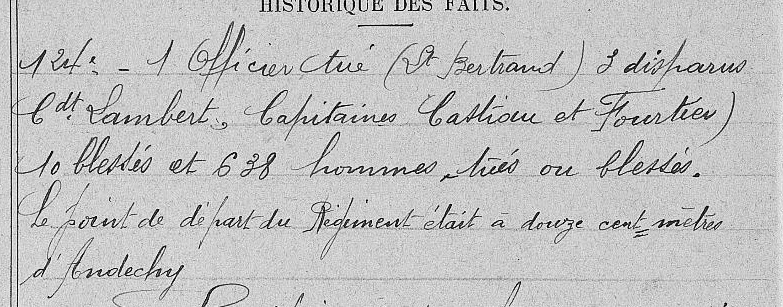 HISTORIQUE DES FAITS.
124e. - 1 Officier tué (Lt Bertrand) 3 disparus
Cdt. Lambert, Capitaines Castiau et Fourtier)
10 blessés et 638 hommes tués ou blessés.
Le point de départ du Régiment était à douze cent mètres
d'Andechy